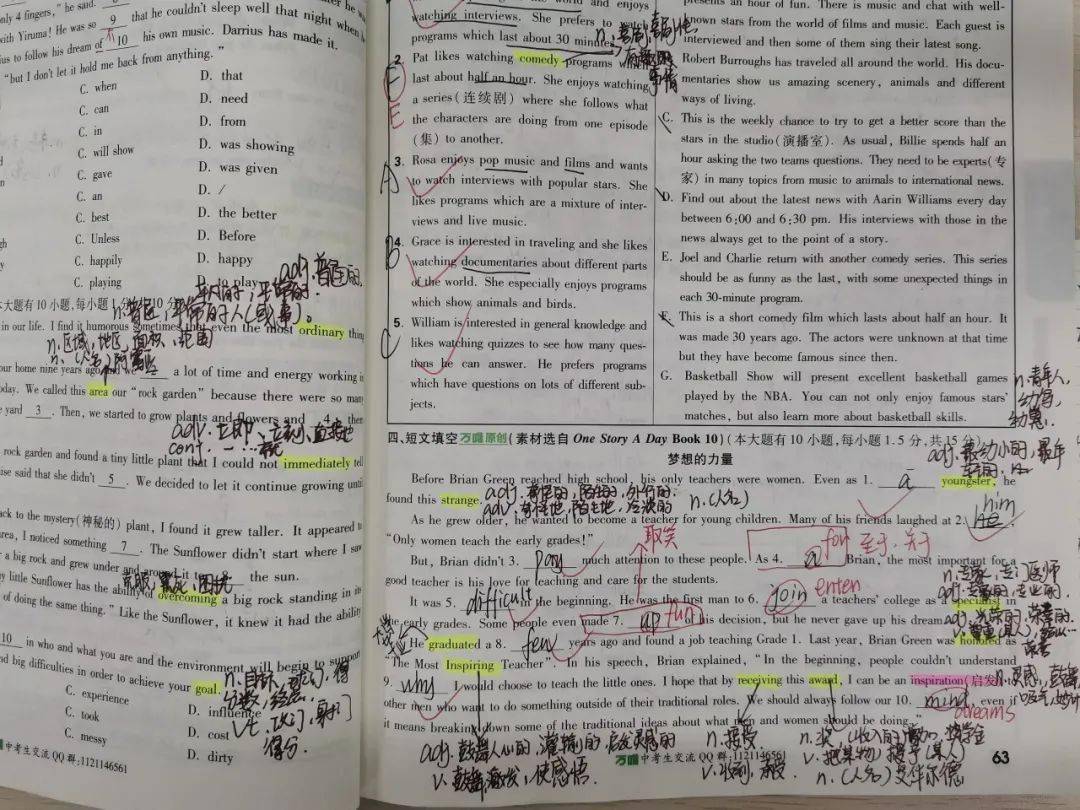 only 4 fingers," he said.
with Yiruma! He was so 9 that he couldn't sleep well that night when
ius to follow his dream of 10 his own music. Darrius has made it.
"but I don't let it hold me back from anything."
C. when D. that
C. can D. need
C. in D. from
C. will show D. was showing
C. gave D. was given
C. an D. /
C. best D. the better
C. Unless D. Before
C. happily D. happy
C. playing D. play
adj. 普通的,
平凡的, 平常的.
本大题有10小题,每小题1分
n. 普通, 平常的人(或事)。
in our life. I find it humorous sometimes that even the most ordinary thing
n. 区域, 地区, 面积, 范围
our home nine years ago a lot of time and energy working
oday. We called this area our "rock garden" because there were so many
e yard 3 . Then, we started to grow plants and flowers and 4 then
adv. 立即, 立刻, 直接地
conj. 一……就
rock garden and found a tiny little plant that I could not immediately tell
ise said that she didn't 5 . We decided to let it continue growing until
ack to the mystery(神秘的) plant, I found it grew taller. It appeared to
area, I noticed something 7 . The Sunflower didn't start where I saw
a big rock and grew under and around it to 8 the sun.
克服
y little Sunflower has the ability of overcoming a big rock standing in its
of doing the same thing." Like the Sunflower, it knew it had the ability
10 in who and what you are and the environment will begin to support
nd big difficulties in order to achieve your goal.
C. experience D. influence
C. took D. cost
C. messy D. dirty
得分.
中考生交流QQ群:1121146561
world and enjoys
watching interviews. She prefers to watch
programs which last about 30 minutes.
2. Pat likes watching comedy programs which
last about half an hour. She enjoys watching
a series(连续剧) where she follows what
the characters are doing from one episode
(集) to another.
E
3. Rosa enjoys pop music and films and wants
to watch interviews with popular stars. She
likes programs which are a mixture of inter-
views and live music.
A
4. Grace is interested in traveling and she likes
watching documentaries about different parts
of the world. She especially enjoys programs
which show animals and birds.
B
5. William is interested in general knowledge and
likes watching quizzes to see how many ques-
tions he can answer. He prefers programs
which have questions on lots of different sub-
jects.
C
presents an hour of fun. There is music and chat with well-
known stars from the world of films and music. Each guest is
interviewed and then some of them sing their latest song.
Robert Burroughs has traveled all around the world. His docu-
mentaries show us amazing scenery, animals and different
ways of living.
C. This is the weekly chance to try to get a better score than the
stars in the studio(演播室). As usual, Billie spends half an
hour asking the two teams questions. They need to be experts(专
家) in many topics from music to animals to international news.
D. Find out about the latest news with Aarin Williams every day
between 6:00 and 6:30 pm. His interviews with those in the
news always get to the point of a story.
E. Joel and Charlie return with another comedy series. This series
should be as funny as the last, with some unexpected things in
each 30-minute program.
F. This is a short comedy film which lasts about half an hour. It
was made 30 years ago. The actors were unknown at that time
but they have become famous since then.
G. Basketball Show will present excellent basketball games
played by the NBA. You can not only enjoy famous stars'
matches, but also learn more about basketball skills.
n. 青年人,
四、短文填空 万唯原创(素材选自 One Story A Day Book 10)(本大题有10小题,每小题1.5分,共15分)
梦想的力量
Before Brian Green reached high school, his only teachers were women. Even as 1. a youngster, he
found this strange.
n. (人名)
As he grew older, he wanted to become a teacher for young children. Many of his friends laughed at 2. him
"Only women teach the early grades!"
取笑
for 至于, 关于
But, Brian didn't 3. pay much attention to these people. As 4. a Brian, the most important for a
good teacher is his love for teaching and care for the students.
It was 5. difficult in the beginning. He was the first man to 6. join enter a teachers' college as a specialist in
the early grades. Some people even made 7. up fun his decision, but he never gave up his dream.
He graduated a 8. few years ago and found a job teaching Grade 1. Last year, Brian Green was honored as
"The Most Inspiring Teacher". In his speech, Brian explained, "In the beginning, people couldn't understand
9. why I would choose to teach the little ones. I hope that by receiving this award, I can be an inspiration(启发) to
other men who want to do something outside of their traditional roles. We should always follow our 10. mind dreams, even if
it means breaking down some of the traditional ideas about what men and women should be doing."
adj. 鼓舞人心的,
v. 鼓舞, 激发, 使感悟.
n. 接受
v. 收到, 接受
万唯中考生交流QQ群:1121146561
63